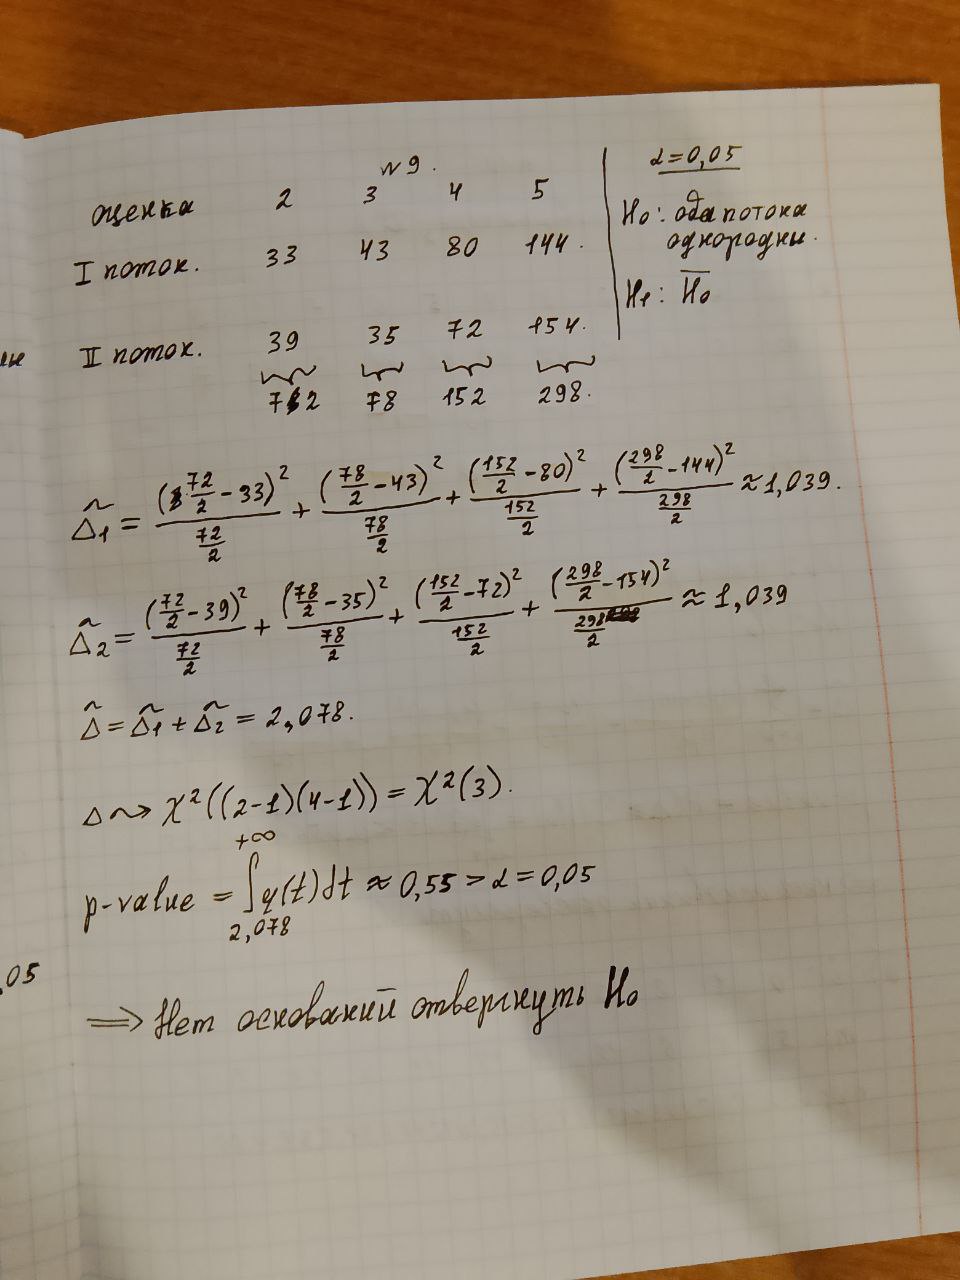 №9.
оценка 2 3 4 5
I поток. 33 43 80 144.
II поток. 39 35 72 154.
72 78 152 298.
α=0,05
H₀: оба потока
однородны.
H₁: H̅₀
Δ̃₁ = (72/2 - 33)²/(72/2) + (78/2 - 43)²/(78/2) + (152/2 - 80)²/(152/2) + (298/2 - 144)²/(298/2) ≈ 1,039.
Δ̃₂ = (72/2 - 39)²/(72/2) + (78/2 - 35)²/(78/2) + (152/2 - 72)²/(152/2) + (298/2 - 154)²/(298/2) ≈ 1,039
Δ̃ = Δ̃₁ + Δ̃₂ = 2,078.
Δ ⇝ χ²((2-1)(4-1)) = χ²(3).
p-value = ∫_{2,078}^{+∞} q(t)dt ≈ 0,55 > α = 0,05
⟹ Нет оснований отвергнуть H₀
,05